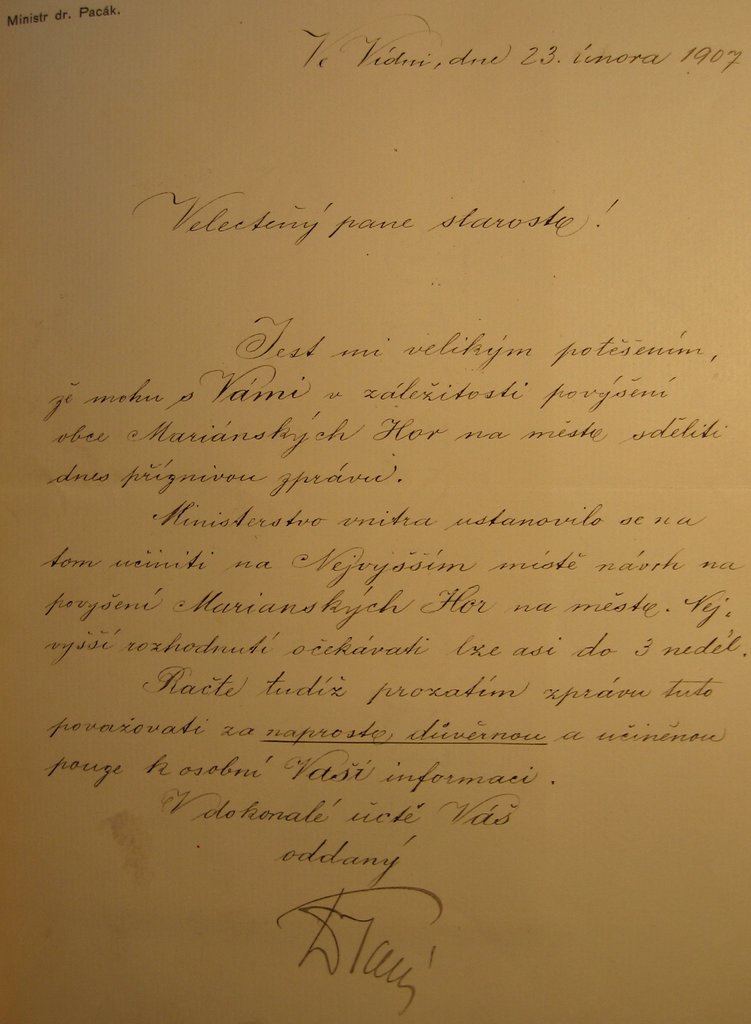 Ministr dr. Pacák.
Ve Vídni, dne 23. února 1907
Velectěný pane starosto!
Jest mi velikým potěšením,
že mohu s Vámi v záležitosti povýšení
obce Mariánských Hor na město sděliti
dnes příznivou zprávu.
Ministerstvo vnitra ustanovilo se na
tom učiniti na Nejvyšším místě návrh na
povýšení Marianských Hor na město. Nej-
vyšší rozhodnutí očekávati lze asi do 3 neděl.
Račte tudíž prozatím zprávu tuto
považovati za naprosto důvěrnou a učiněnou
pouze k osobní Vaší informaci.
V dokonalé úctě Váš
oddaný